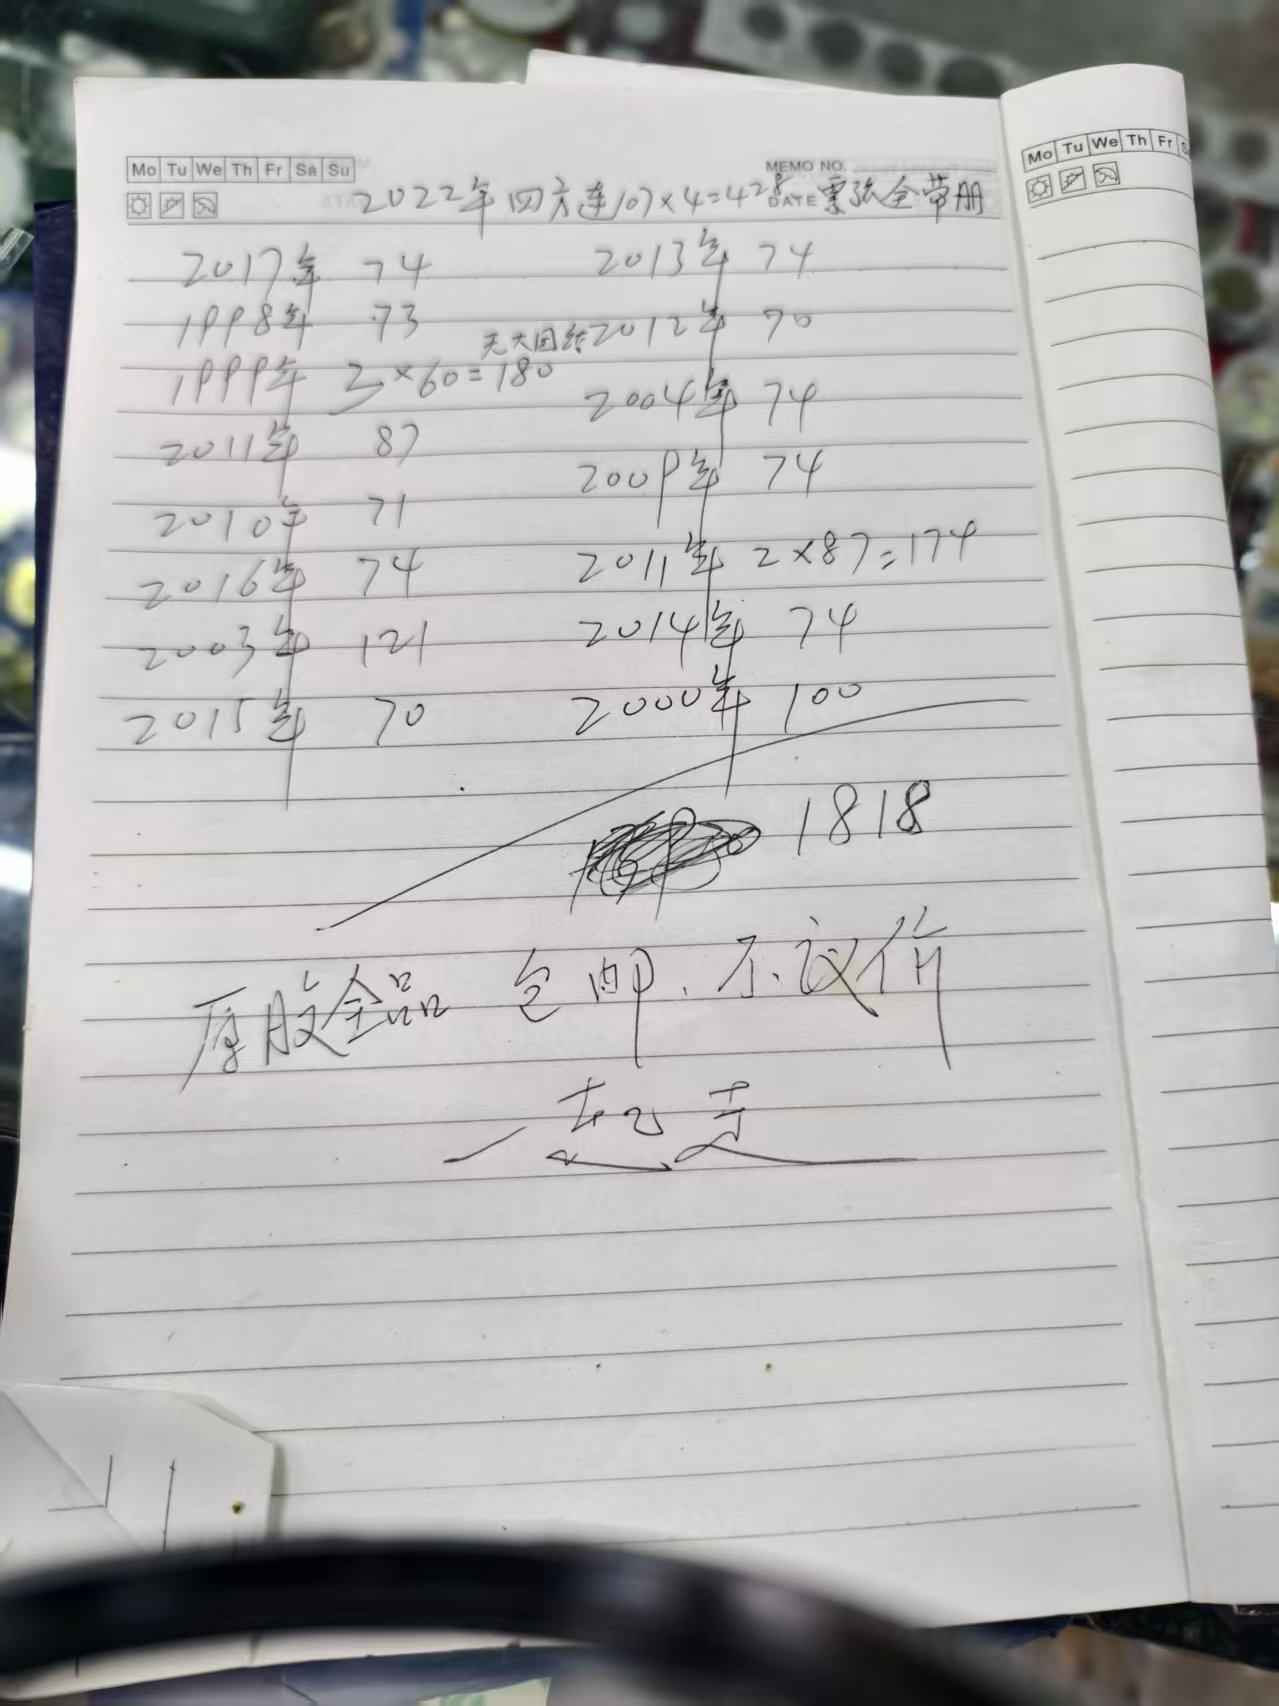 Mo Tu We Th Fr Sa Su
MEMO NO.
DATE
2022年四方连107×4=428 票张全带册
2017年 74
1998年 73
1999年 3×60=180 无大团结
2011年 87
2010年 71
2016年 74
2003年 121
2015年 70
2013年 74
2012年 70
2004年 74
2009年 74
2011年 2×87=174
2014年 74
2000年 100
1818
原胶全品 包邮、不议价
一起走
Mo Tu We Th Fr S